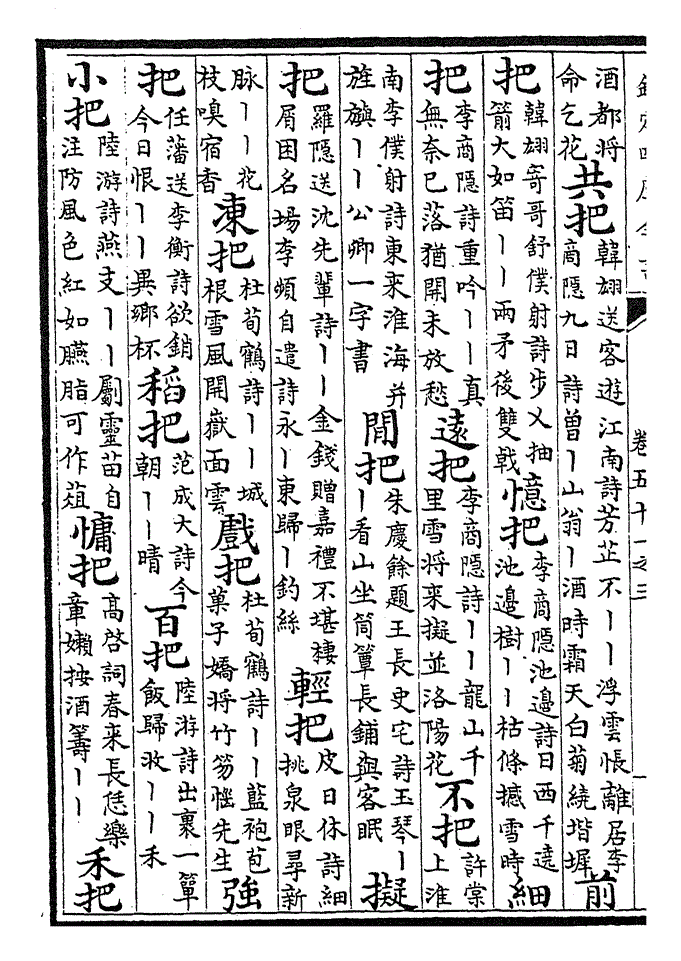 欽定四庫全書
卷五十一之三
酒都將
命乞花
共把
韓翃送客遊江南詩芳芷不丨丨浮雲悵離居李
商隱九日詩曾丨山翁丨酒時霜天白菊繞堦墀
前
把
韓翃寄哥舒僕射詩步乂抽
箭大如笛丨丨兩矛後雙戟
憶把
李商隱池邊詩日西千遶
池邊樹丨丨枯條撼雪時
細
把
李商隱詩重吟丨丨真
無奈已落猶開未放愁
遠把
李商隱詩丨丨龍山千
里雪將来擬並洛陽花
不把
許棠
上淮
南李僕射詩東来淮海并
旌旗丨丨公卿一字書
閒把
朱慶餘題王長史宅詩玉琴丨
丨看山坐筒簟長鋪與客眠
擬
把
羅隱送沈先輩詩丨丨金錢贈嘉禮不堪棲
屑困名場李頻自遣詩永丨東歸丨釣絲
輕把
皮日休詩細
挑泉眼尋新
脉丨丨花
枝嗅宿香
凍把
杜荀鶴詩丨丨城
根雪風開嶽面雲
戲把
杜荀鶴詩丨丨藍袍苞
菓子嬌將竹笏惱先生
強
把
任藩送李衡詩欲銷
今日恨丨丨異鄉杯
稻把
范成大詩今
朝丨丨晴
百把
陸游詩出裹一簞
飯歸收丨丨禾
小把
陸游詩燕支丨丨劚靈苗自
注防風色紅如臙脂可作葅
慵把
高啓詞春来長恁樂
章嬾按酒籌丨丨
禾把